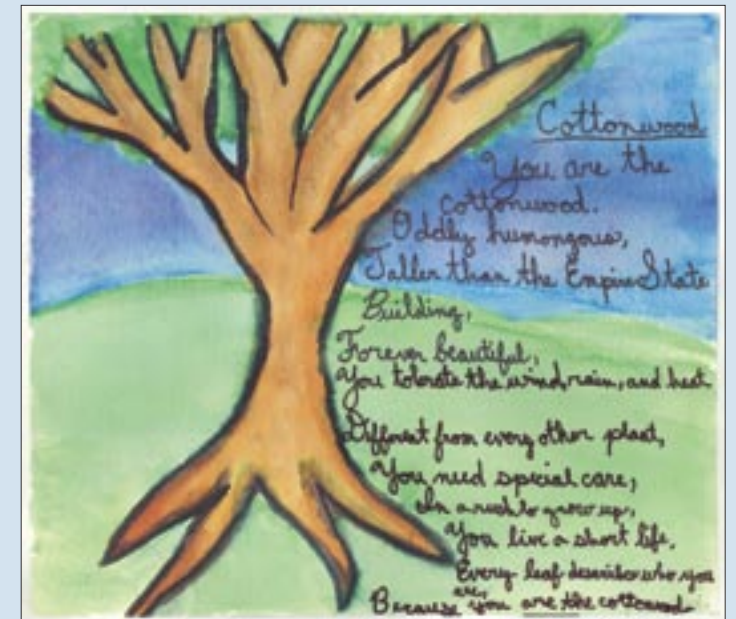 Cottonwood
You are the
cottonwood.
Oddly humongous,
Taller than the Empire State
Building,
Forever beautiful,
You tolorate the wind, rain, and heat
Different from every other plant,
You need special care,
In a rush to grow up,
You live a short life.
Every leaf describes who you
are,
Because you are the cottonwood